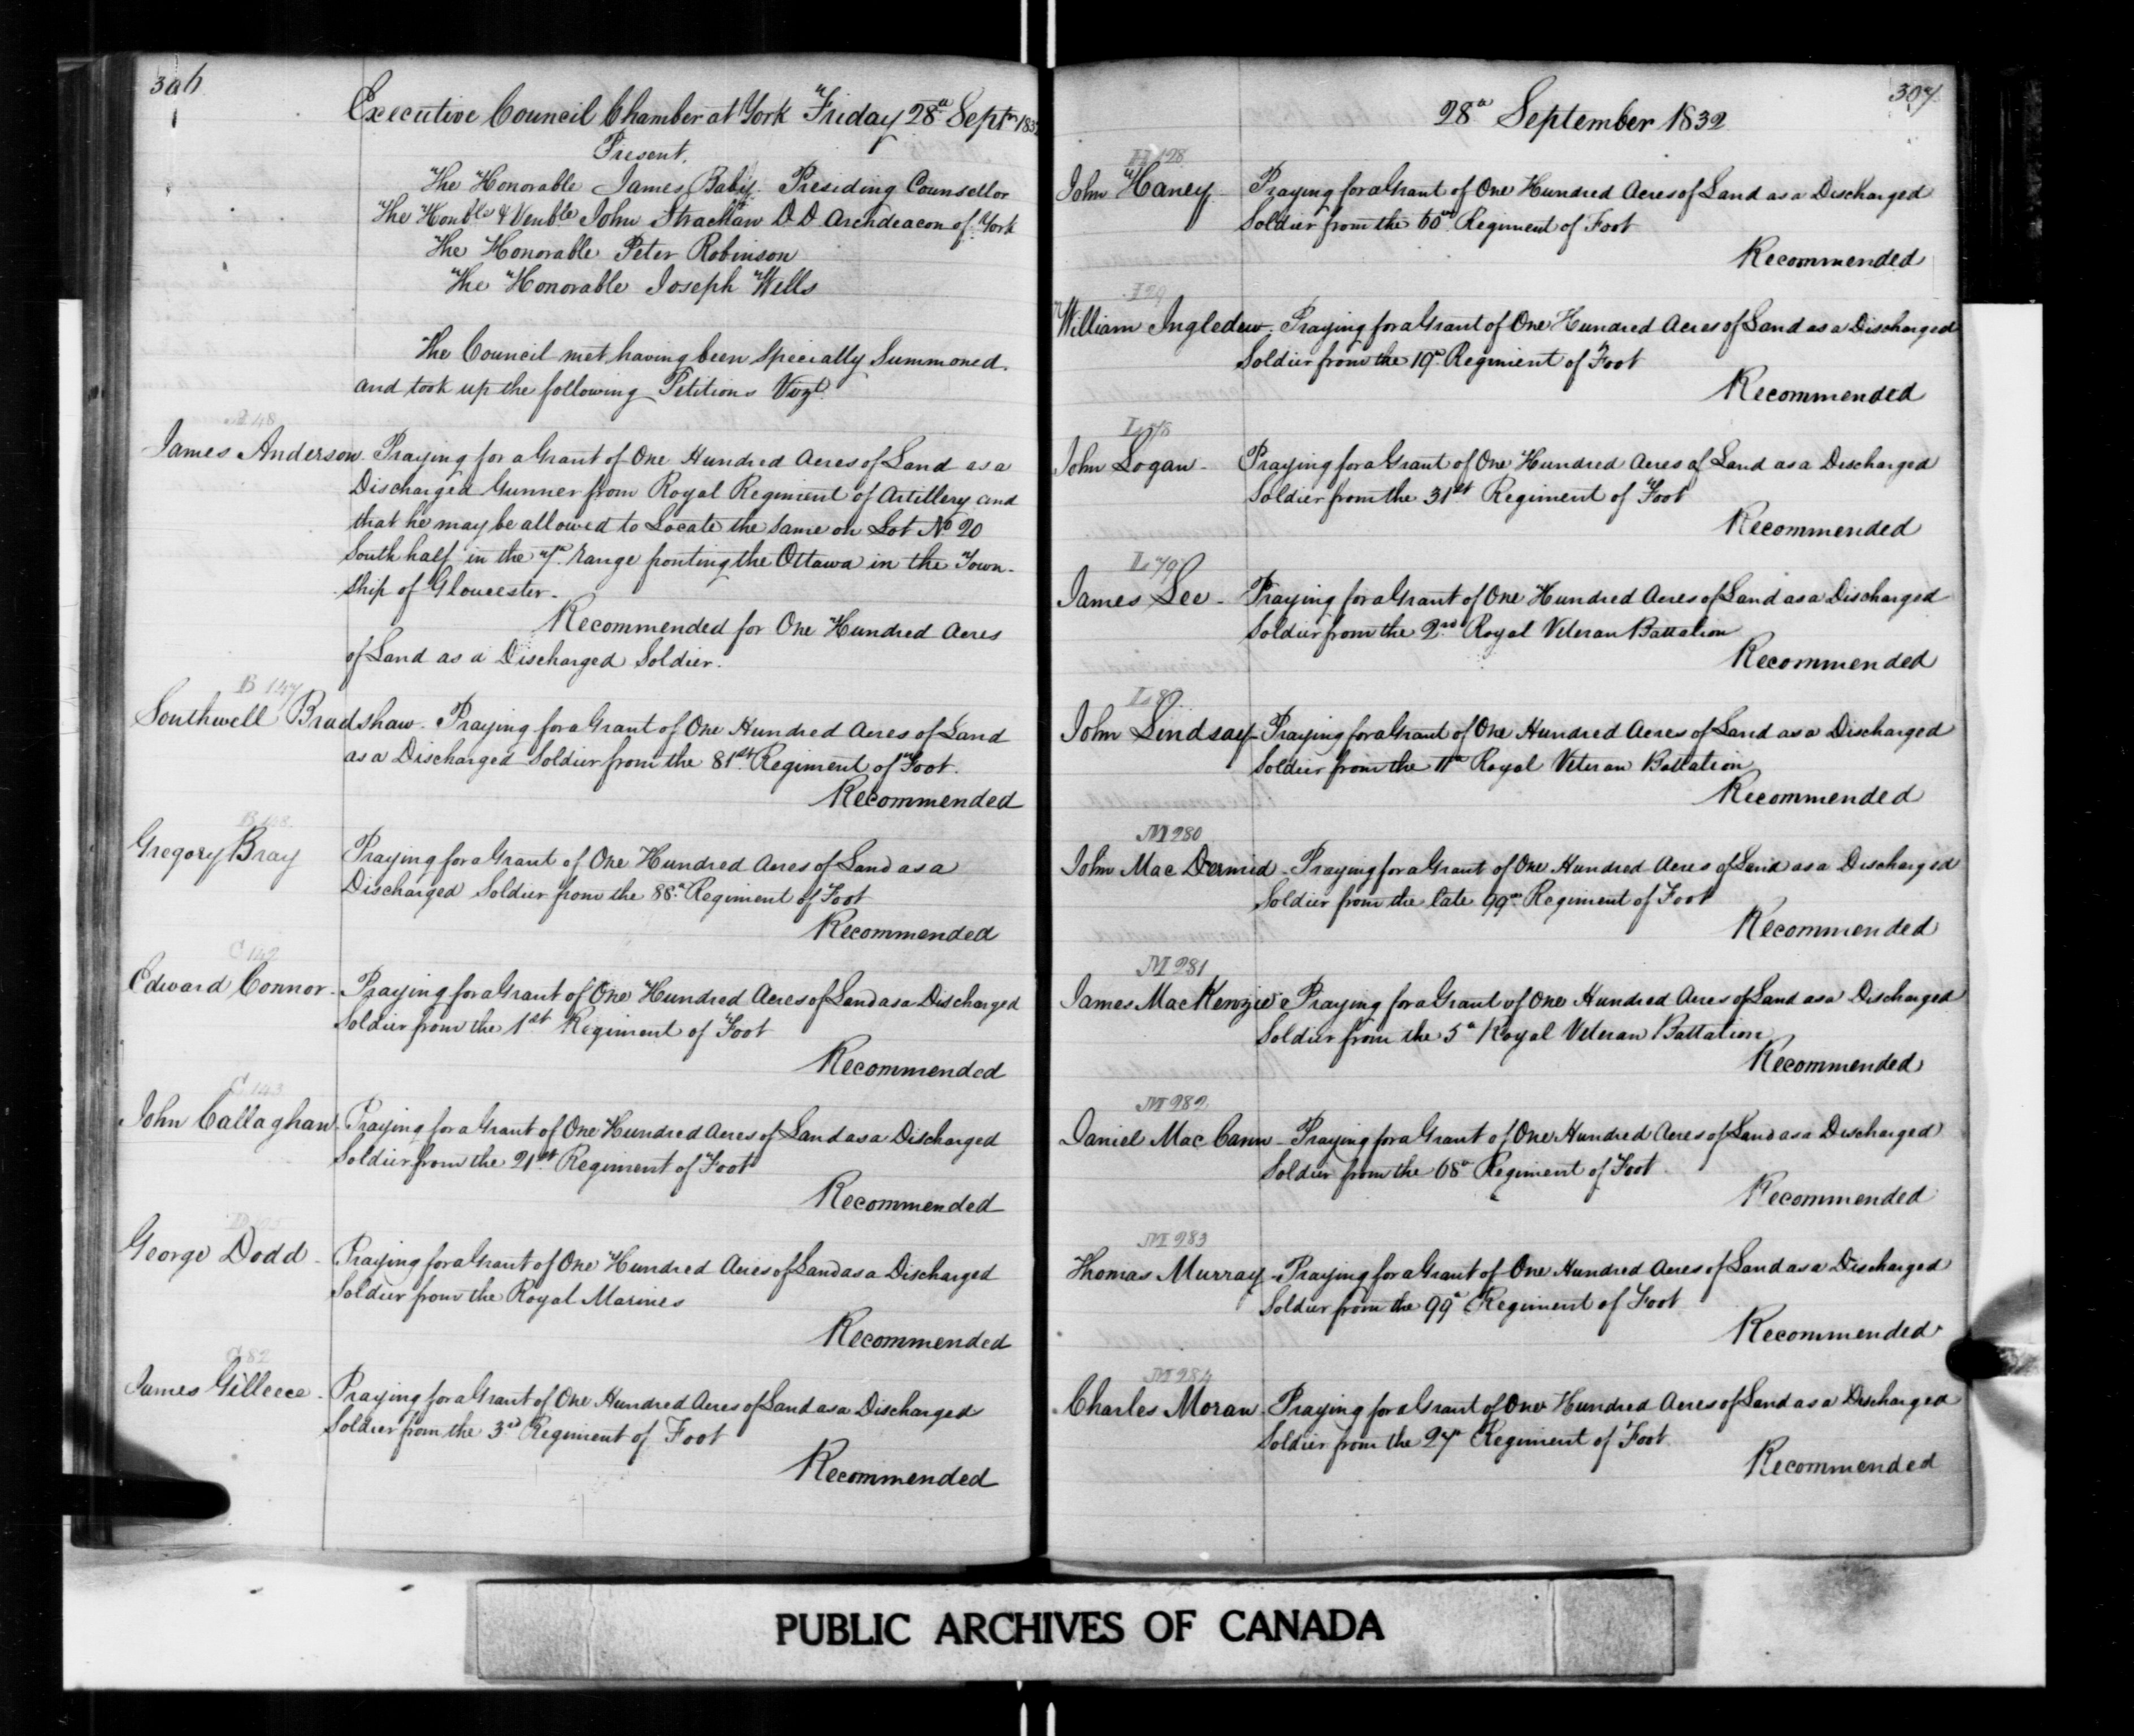 306
Executive Council Chamber at York Friday 28th Septr 1832
Present,
The Honorable James Baby Presiding Counsellor
The Honble & Venble John Strachan D D Archdeacon of York
The Honorable Peter Robinson
The Honorable Joseph Wells
The Council met having been Specially Summoned.
and took up the following Petitions Vizt
A 48
James Anderson Praying for a Grant of One Hundred Acres of Land as a
Discharged Gunner from Royal Regiment of Artillery and
that he may be allowed to Locate the same on Lot No 20
South half in the 7th range fronting the Ottawa in the Town-
ship of Gloucester.
Recommended for One Hundred Acres
of Land as a Discharged Soldier.
B 147
Southwell Bradshaw. Praying for a Grant of One Hundred Acres of Land
as a Discharged Soldier from the 81st Regiment of Foot.
Recommended
B 148
Gregory Bray Praying for a Grant of One Hundred Acres of Land as a
Discharged Soldier from the 88th Regiment of Foot
Recommended
C 142
Edward Connor - Praying for a Grant of One Hundred Acres of Land as a Discharged
Soldier from the 1st Regiment of Foot
Recommended
C 143
John Callaghan - Praying for a Grant of One Hundred Acres of Land as a Discharged
Soldier from the 21st Regiment of Foot
Recommended
George Dodd - Praying for a Grant of One Hundred Acres of Land as a Discharged
Soldier from the Royal Marines
Recommended
G 82
James Gilleece - Praying for a Grant of One Hundred Acres of Land as a Discharged
Soldier from the 3rd Regiment of Foot
Recommended
307
28th September 1832
H 128
John Haney - Praying for a Grant of One Hundred Acres of Land as a Discharged
Soldier from the 60th Regiment of Foot
Recommended
I 29
William Ingledew. Praying for a Grant of One Hundred Acres of Land as a Discharged
Soldier from the 19th Regiment of Foot
Recommended
L 78
John Logan - Praying for a Grant of One Hundred Acres of Land as a Discharged
Soldier from the 31st Regiment of Foot
Recommended
L 79
James Lee - Praying for a Grant of One Hundred Acres of Land as a Discharged
Soldier from the 2nd Royal Veteran Battalion
Recommended
L 80
John Lindsay - Praying for a Grant of One Hundred Acres of Land as a Discharged
Soldier from the 11th Royal Veteran Battalion
Recommended
M 280
John Mac Dermid - Praying for a Grant of One Hundred Acres of Land as a Discharged
Soldier from the late 99th Regiment of Foot
Recommended
M 281
James MacKenzie - Praying for a Grant of One Hundred Acres of Land as a Discharged
Soldier from the 5th Royal Veteran Battalion
Recommended
M 282
Daniel Mac Cann - Praying for a Grant of One Hundred Acres of Land as a Discharged
Soldier from the 68th Regiment of Foot
Recommended
M 283
Thomas Murray - Praying for a Grant of One Hundred Acres of Land as a Discharged
Soldier from the 99th Regiment of Foot
Recommended
M 284
Charles Moran Praying for a Grant of One Hundred Acres of Land as a Discharged
Soldier from the 27th Regiment of Foot
Recommended
PUBLIC ARCHIVES OF CANADA